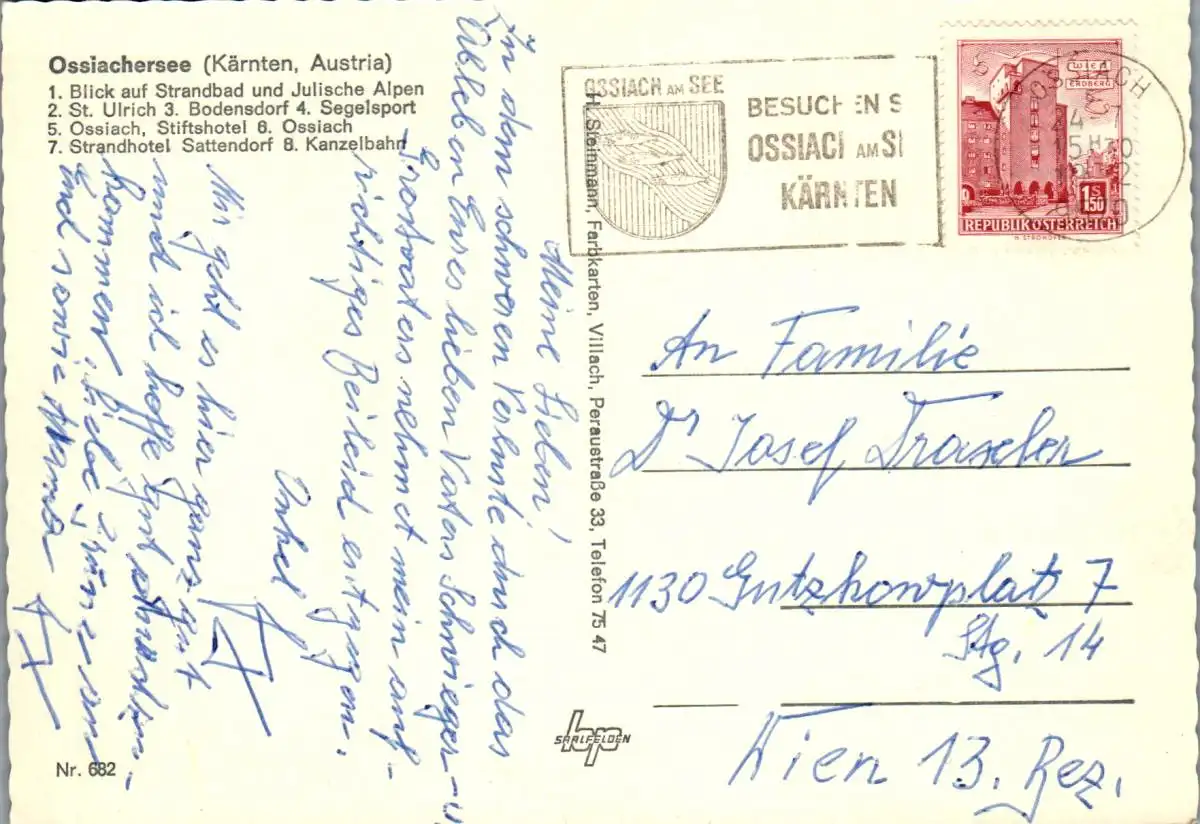 Ossiachersee (Kärnten, Austria)
1. Blick auf Strandbad und Julische Alpen
2. St. Ulrich 3. Bodensdorf 4. Segelsport
5. Ossiach, Stiftshotel 6. Ossiach
7. Strandhotel Sattendorf 8. Kanzelbahn
OSSIACH AM SEE
BESUCHEN S
OSSIACH AM SE
KÄRNTEN
OSSIACH
15 H 30
WIEN
ERDBERG
1.50 S
REPUBLIK ÖSTERREICH
H. STROHOFER
Meine Lieben!
In dem schweren Verluste durch das
Ableben Eures lieben Vaters Schwieger- u.
Grossvaters nehmet mein auf-
richtiges Beileid entgegen.
Onkel
Mir geht es hier ganz gut
und ich hoffe gut
kommen. Liebe Grüsse an
Euch sowie Mama
H. Steinmann, Farbkarten, Villach, Peraustraße 33, Telefon 75 47
An Familie
Dr Josef Draxler
1130 Gutzkowplatz 7
Stg. 14
Wien 13. Bez.
bp
SAALFELDEN
Nr. 682